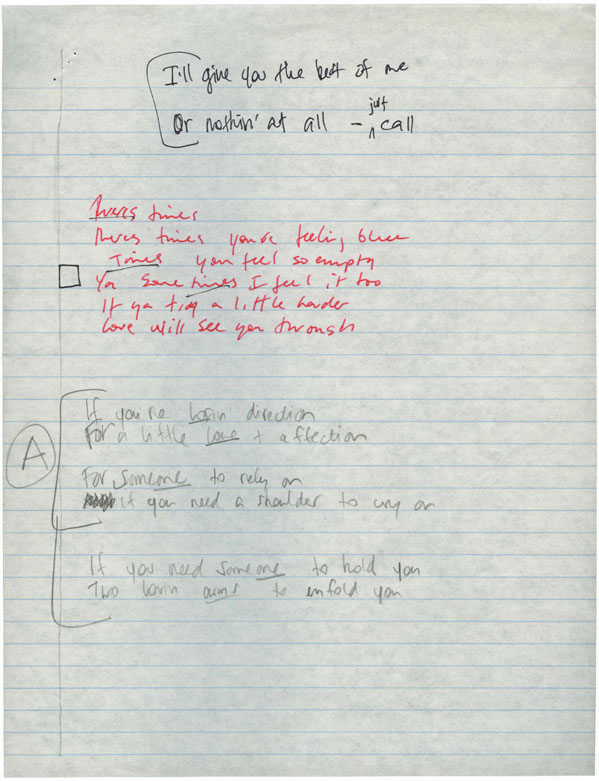 I'll give you the best of me
Or nothin' at all - just call
theres times
theres times you're feeling blue
Times you feel so empty
Ya Sometimes I feel it too
If ya try a little harder
Love will see you through
If you're lovin' direction
For a little love + affection
A
For someone to rely on
if you need a shoulder to cry on
If you need someone to hold you
Two lovin arms to enfold you